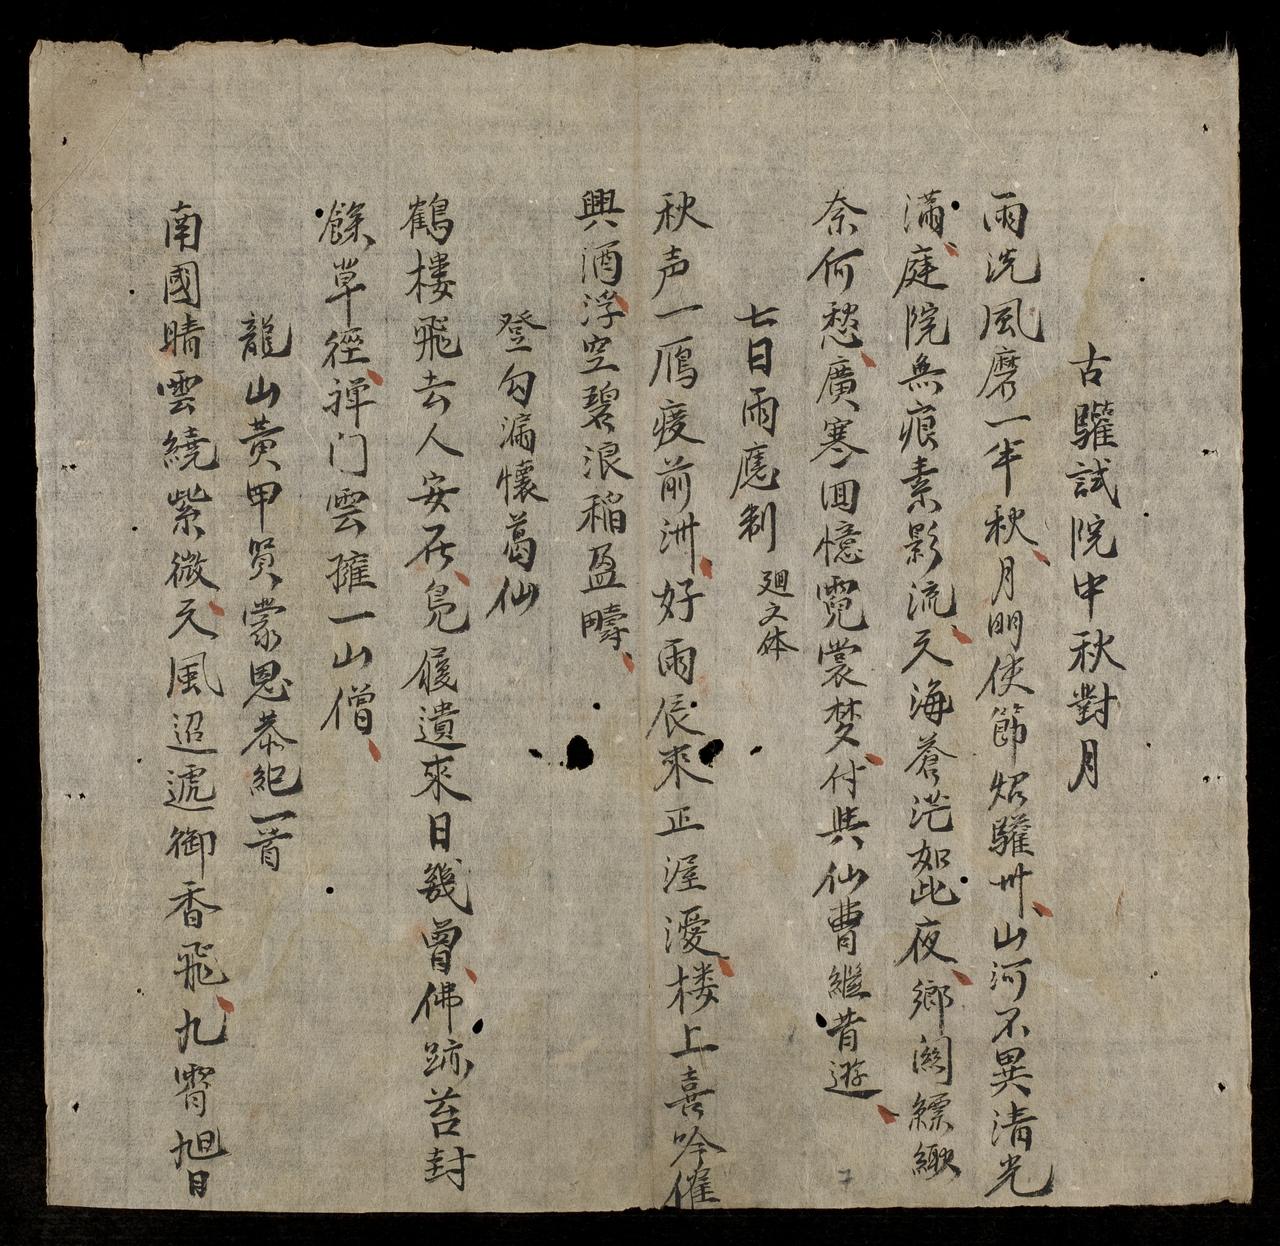 古驩試院中秋對月
雨洗風磨一半秋月明使節炤驩州山河不異清光
滿庭院無痕素影流天海蒼茫如此夜鄉関縹緲
奈何愁廣寒回憶霓裳梦付與仙曹繼昔遊
七日雨應制 廻文体
秋声一鴈度前洲好雨辰來正渥漫楼上喜吟催
興酒浮空碧浪稲盈疇
登勾漏懷葛仙
鶴楼飛去人安在凫履遺來日幾曾佛跡苔封
餘草徑禅门雲擁一山僧
龍山黃甲賀蒙恩恭紀一首
南國晴雲繞紫微天風迢遞御香飛九霄旭日